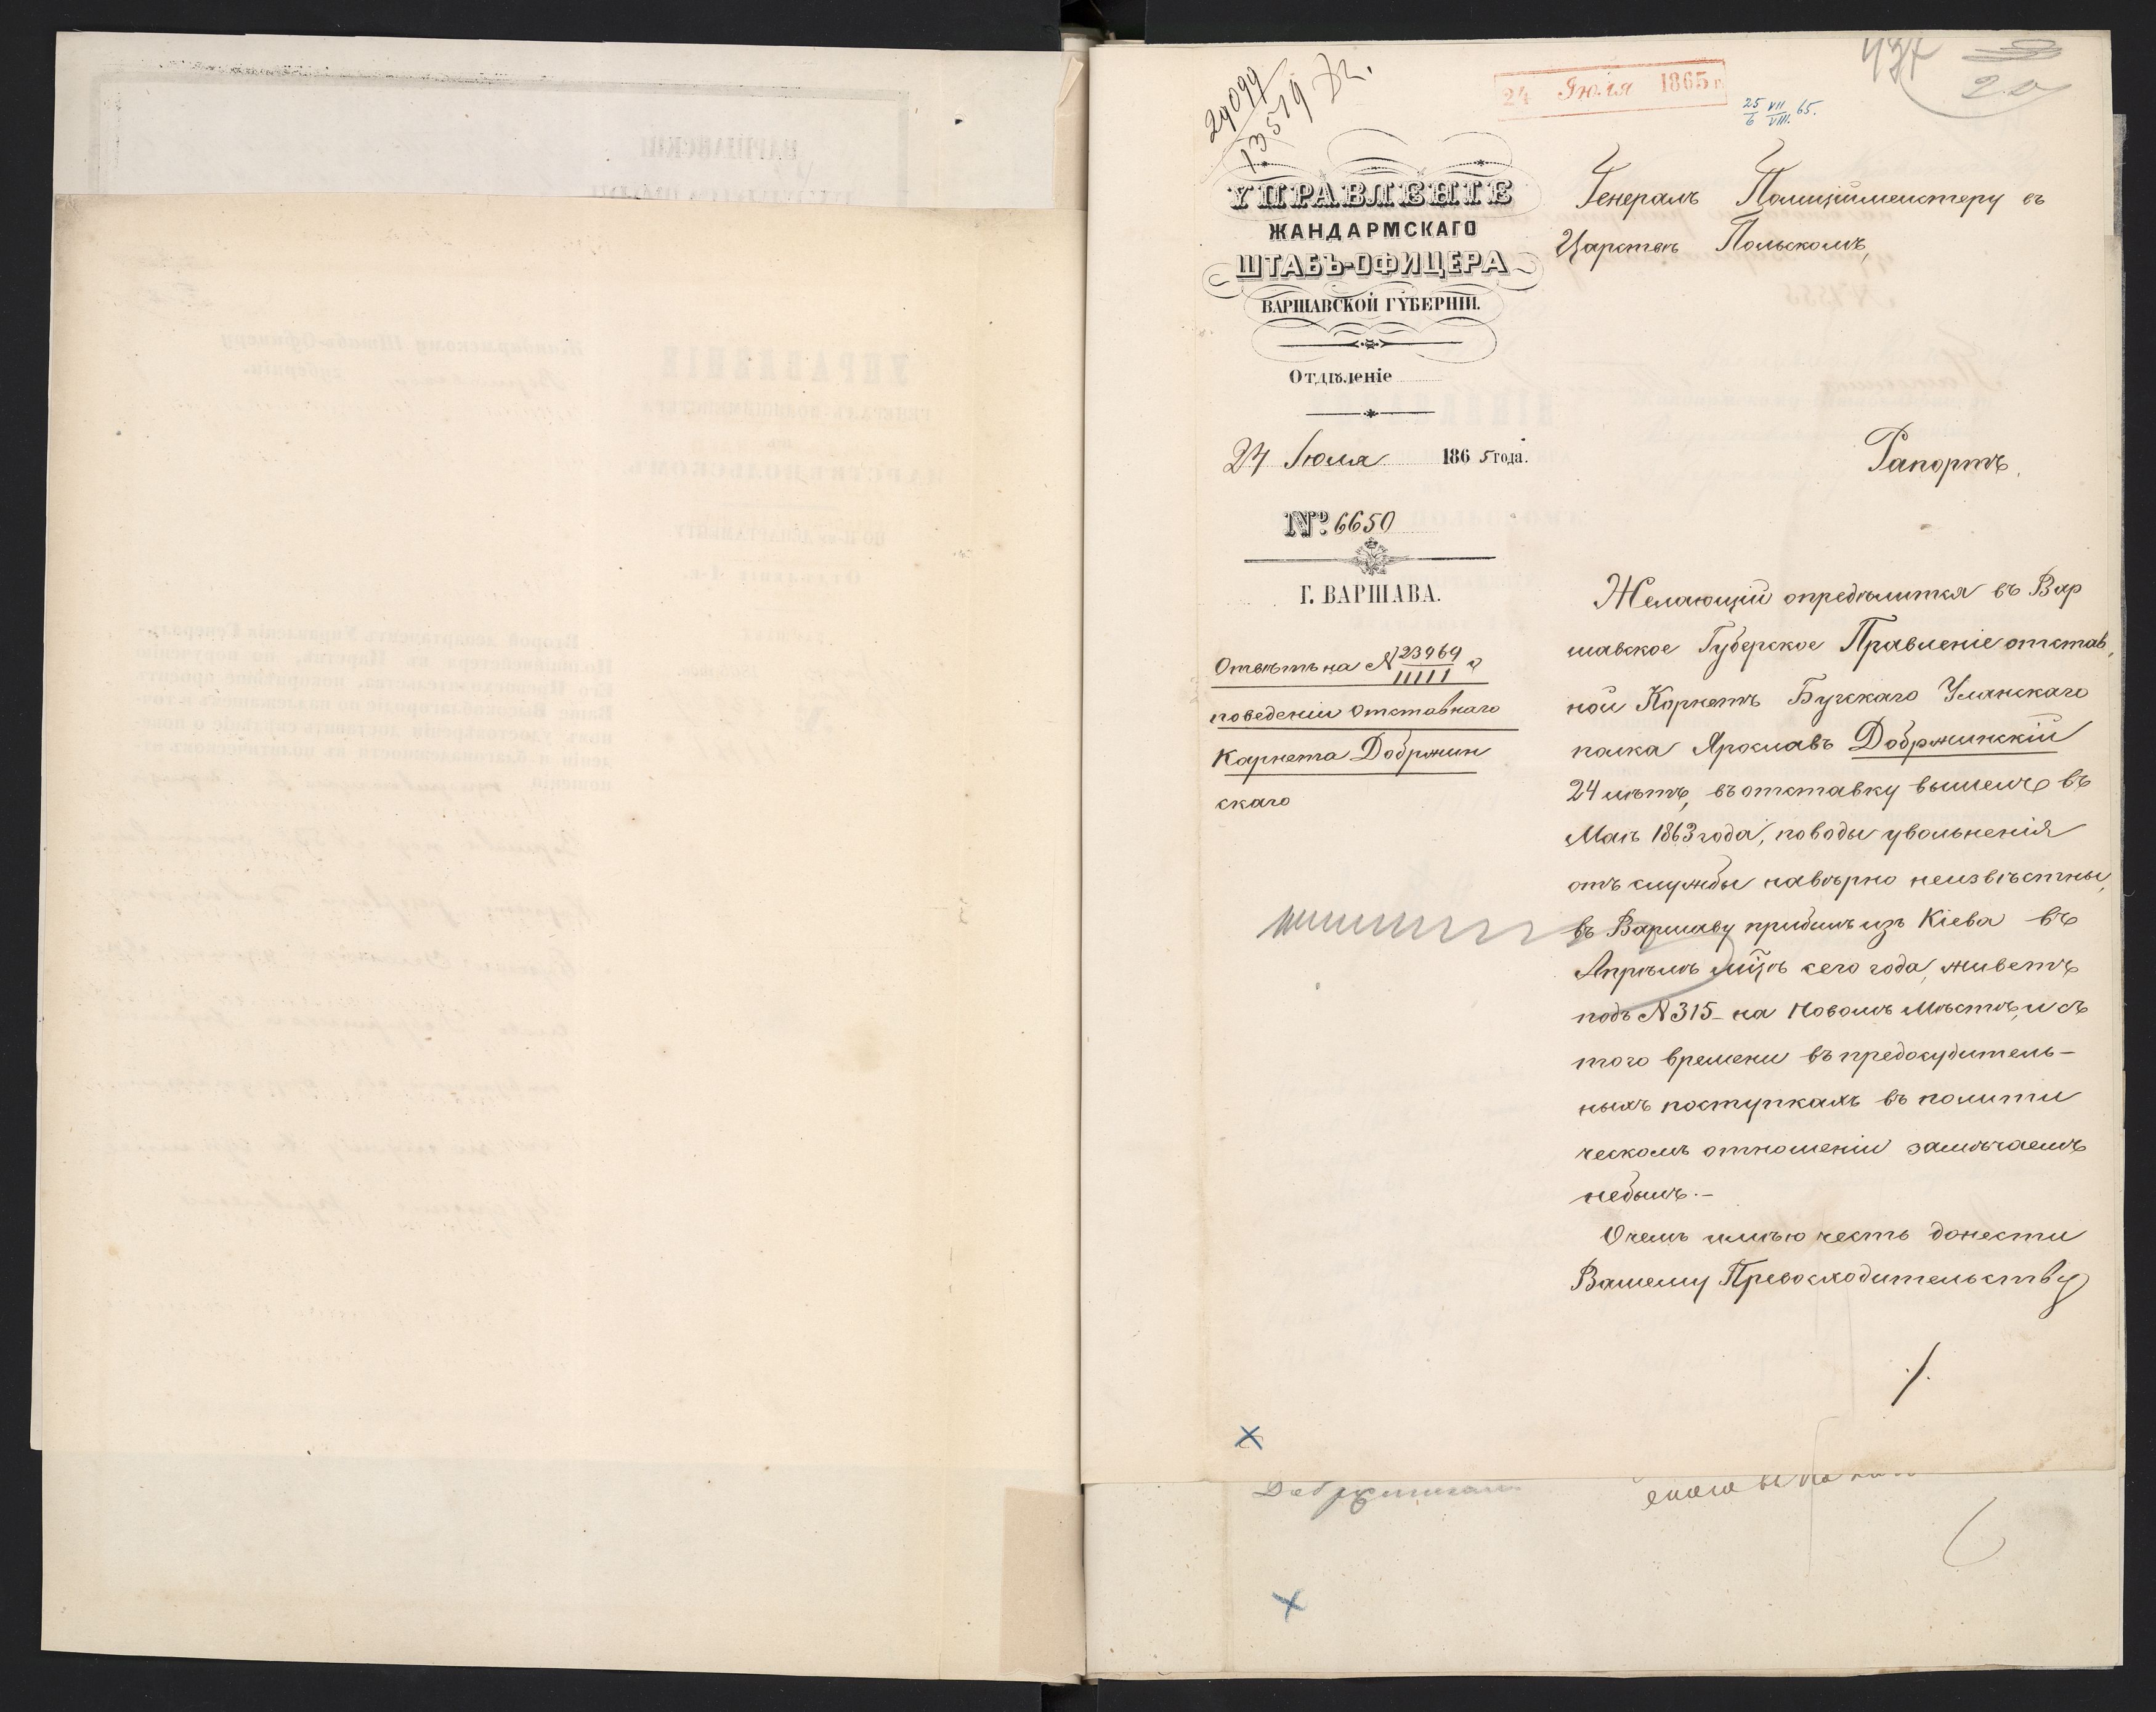 24099
13519
24 Іюля 1865 г.
25/6 VII/VIII. 65.
20
УПРАВЛЕНІЕ
ЖАНДАРМСКАГО
ШТАБЪ-ОФИЦЕРА
ВАРШАВСКОЙ ГУБЕРНІИ.
Отдѣленіе
24 Іюля 1865 года.
№ 6650
Г. ВАРШАВА.
Отвѣтъ на № 23969 о
поведеніи отставнаго
Карнета Добржин
скаго
Генералъ Полиціймейстеру въ
Царствѣ Польскомъ,
Рапортъ.
Желающій опредѣлится въ Вар
шавское Губерское Правленіе отстав,
ной Корнетъ Бугскаго Уланскаго
полка Ярославъ Добржинскій
24 лѣтъ, въ отставку вышелъ въ
Маѣ 1863 года, поводы увольненія
отъ службы навѣрно неизвѣстны,
въ Варшаву прибылъ изъ Кіева въ
Апрѣлѣ мцѣ сего года, живетъ
подъ № 315 на Новомъ Мѣстѣ, и съ
того времени въ предосудитель-
ныхъ поступкахъ въ полити
ческомъ отношеніи замѣчаемъ
небылъ.-
Очемъ имѣю честь донести
Вашему Превосходительству
./.